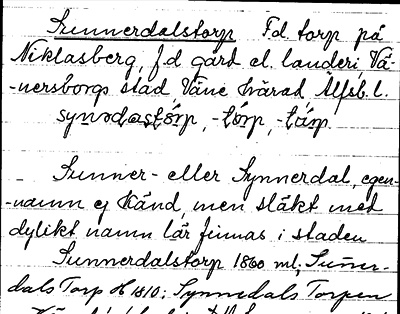 Sunnerdalstorp Fd. torp på
Niklasberg, f.d gård el. landeri, Vä-
-nersborgs stad Väne härad Älfsb. l.
synodastórp, -tórp, -tårp.
Sunner- eller Synnerdal, egen-
-namn ej känd, men släkt med
dylikt namn lär finnas i staden
Sunnerdalstorp 1860 ml, Sunner-
dals Torp H 1810; Synnedals Torpen